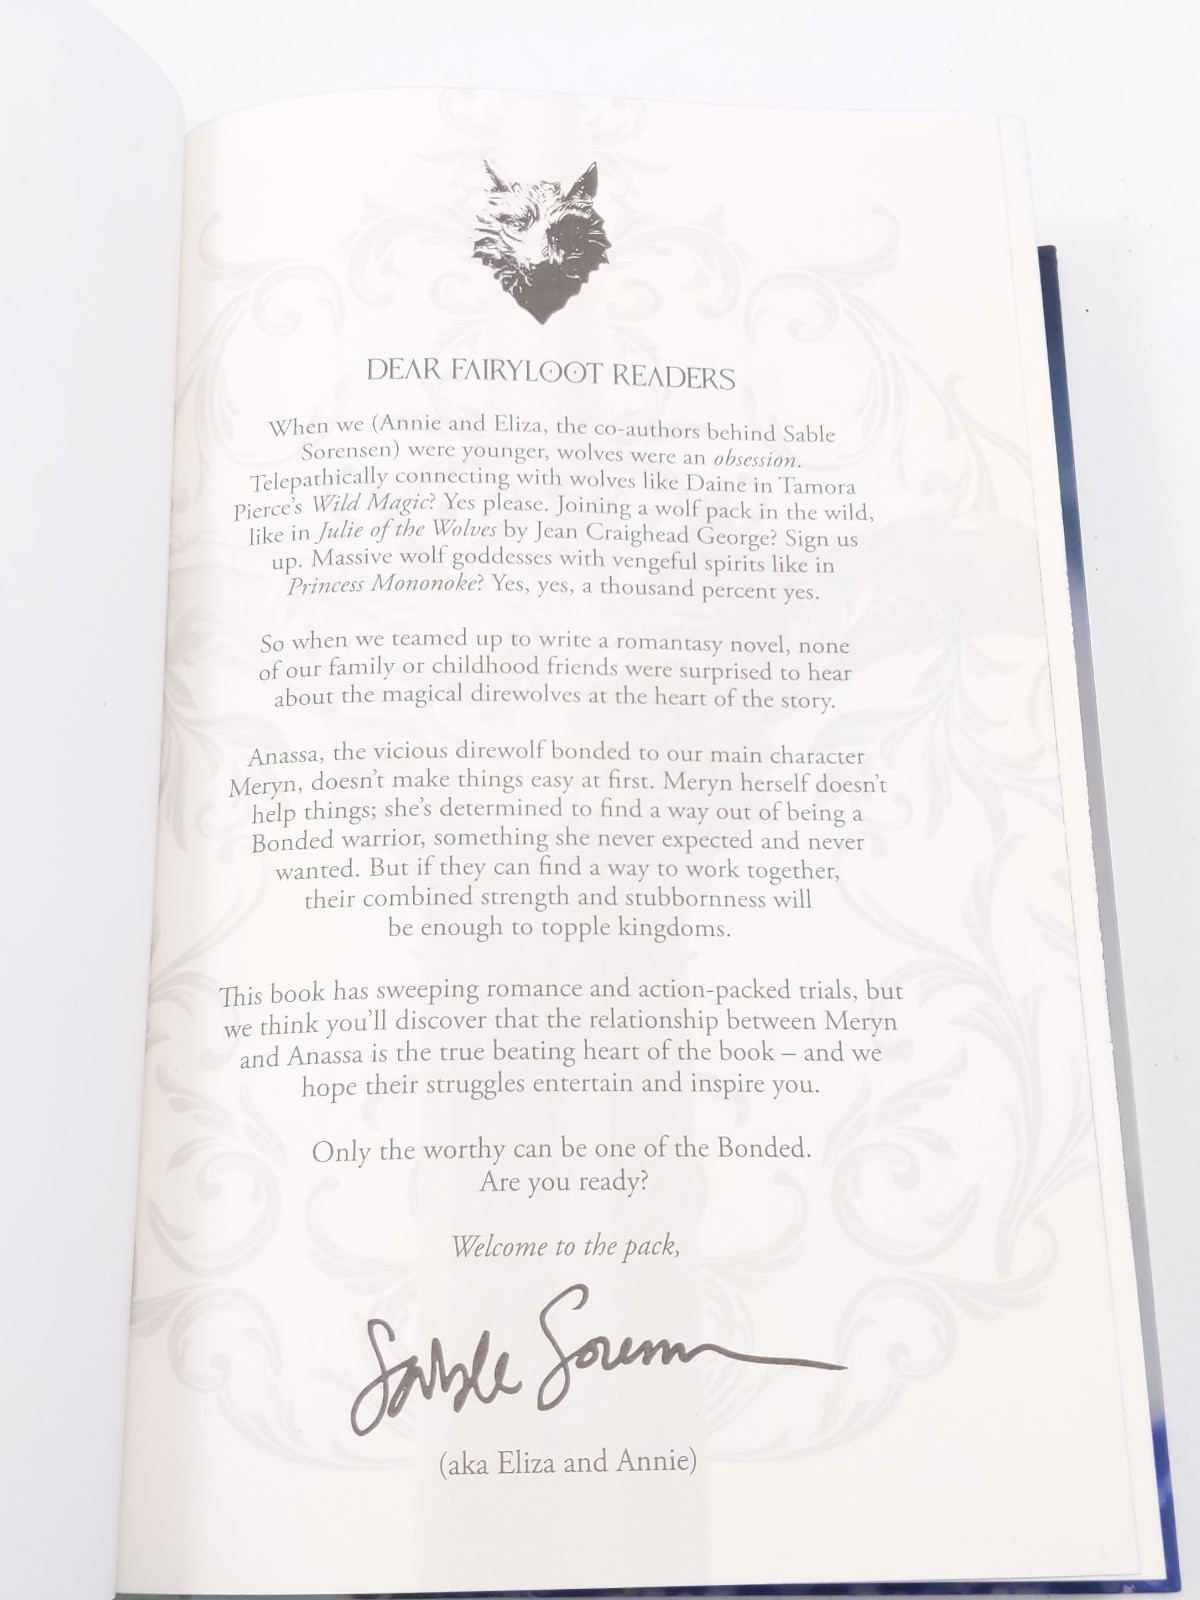 DEAR FAIRYLOOT READERS
When we (Annie and Eliza, the co-authors behind Sable
Sorensen) were younger, wolves were an obsession.
Telepathically connecting with wolves like Daine in Tamora
Pierce's Wild Magic? Yes please. Joining a wolf pack in the wild,
like in Julie of the Wolves by Jean Craighead George? Sign us
up. Massive wolf goddesses with vengeful spirits like in
Princess Mononoke? Yes, yes, a thousand percent yes.
So when we teamed up to write a romantasy novel, none
of our family or childhood friends were surprised to hear
about the magical direwolves at the heart of the story.
Anassa, the vicious direwolf bonded to our main character
Meryn, doesn't make things easy at first. Meryn herself doesn't
help things; she's determined to find a way out of being a
Bonded warrior, something she never expected and never
wanted. But if they can find a way to work together,
their combined strength and stubbornness will
be enough to topple kingdoms.
This book has sweeping romance and action-packed trials, but
we think you'll discover that the relationship between Meryn
and Anassa is the true beating heart of the book – and we
hope their struggles entertain and inspire you.
Only the worthy can be one of the Bonded.
Are you ready?
Welcome to the pack,
Sable Sorensen
(aka Eliza and Annie)